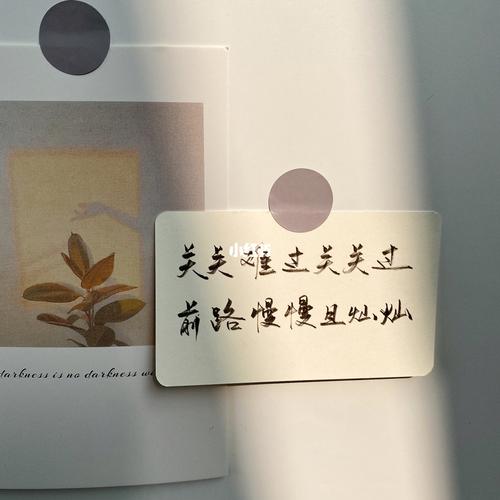 关关难过关关过
前路慢慢且灿灿
darkness is no darkness
小红书